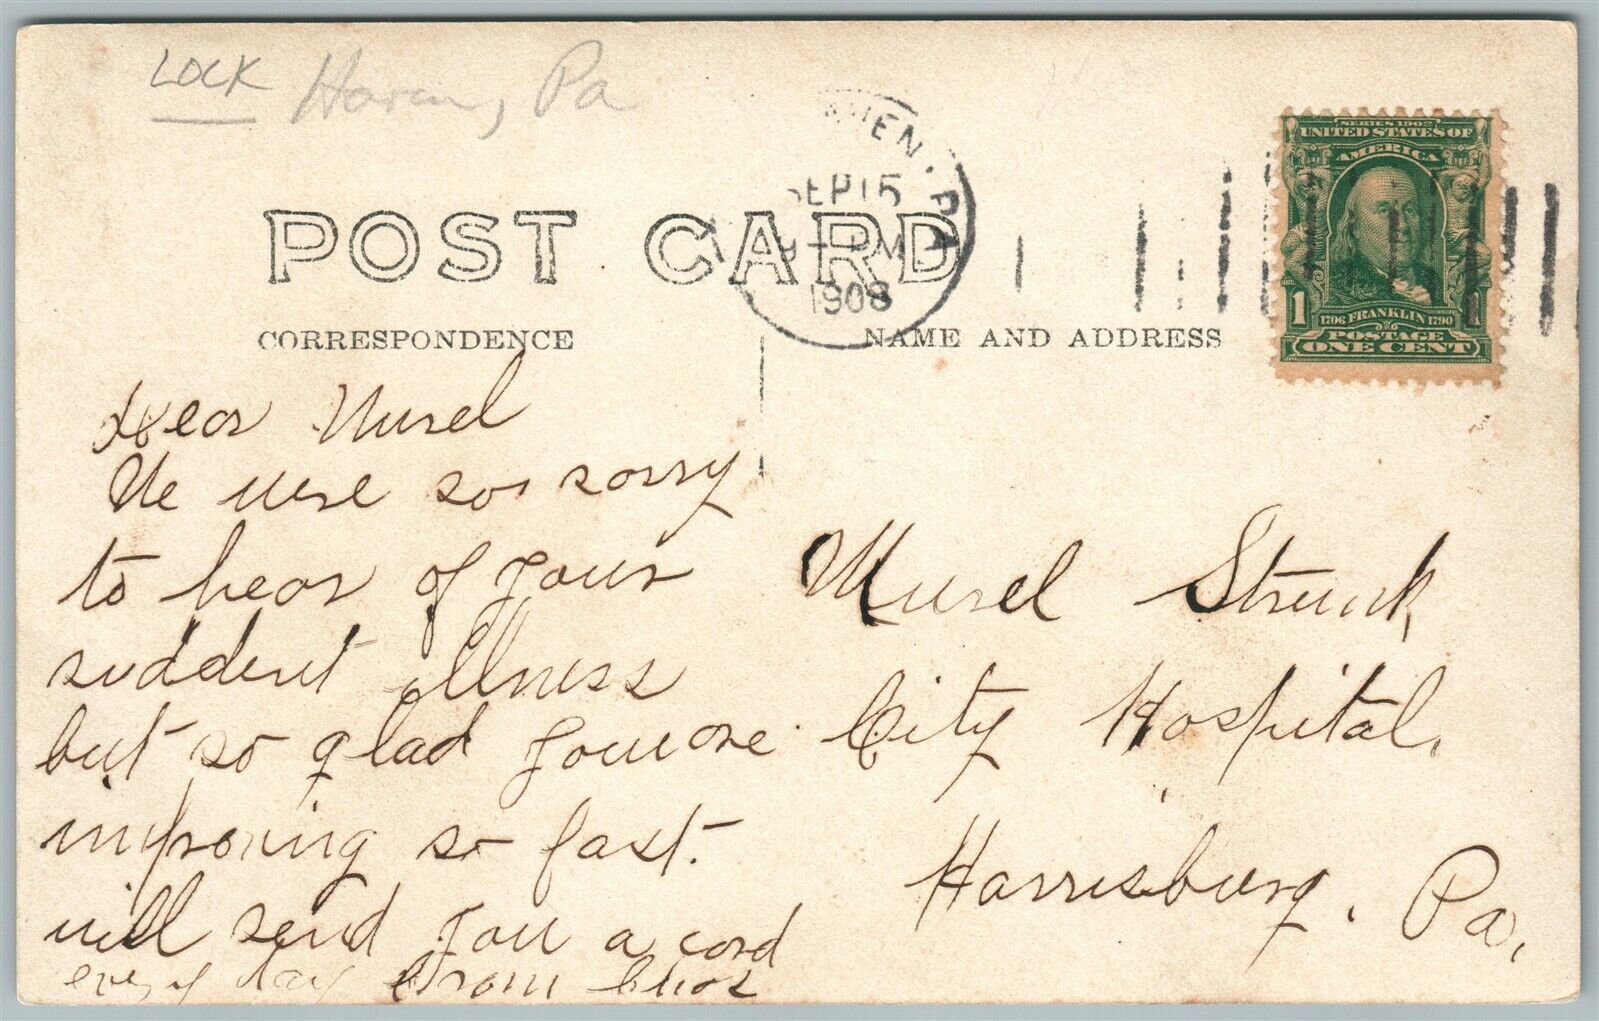 LOCK Haven, Pa
HEN. PA
SEP 15
PM
1908
SERIES 1902
UNITED STATES OF
AMERICA
1 1706 FRANKLIN 1790 1
POSTAGE
ONE CENT
POST CARD
CORRESPONDENCE
NAME AND ADDRESS
Dear Mursel
We were so sorry
to hear of your
suddent illness
but so glad you are
improving so fast.
will send you a card
every day from
Mursel Strunk,
City Hospital,
Harrisburg, Pa,